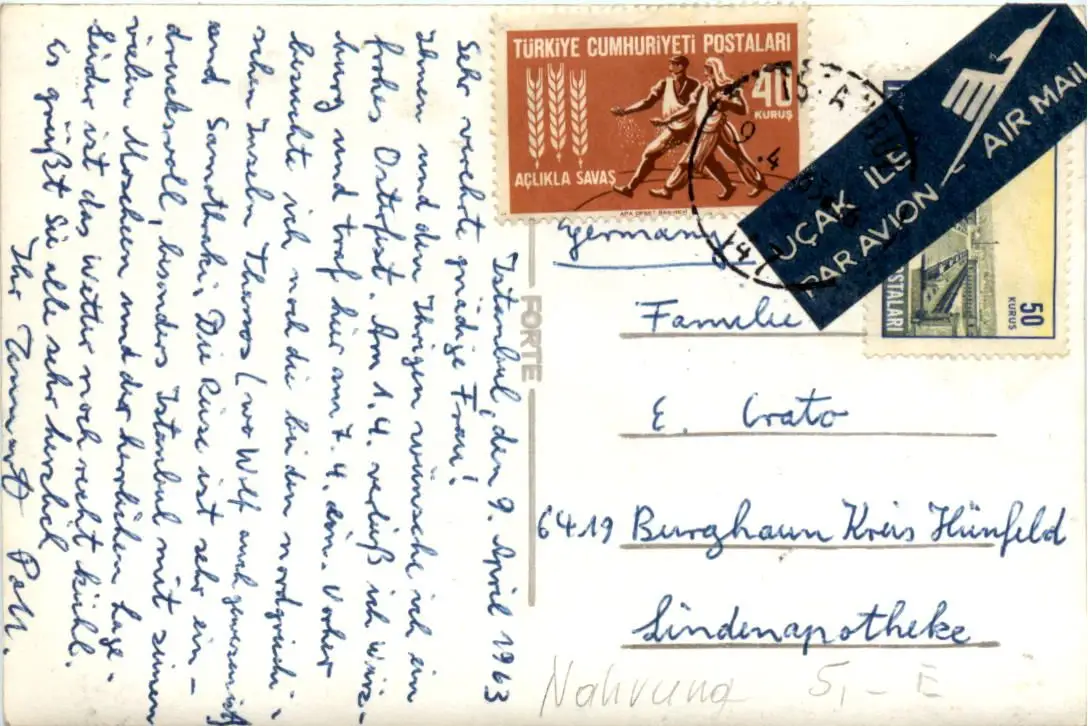 Istanbul, den 9. April 1963
Sehr verehrte gnädige Frau!
Ihnen und den Ihrigen wünsche ich ein
frohes Osterfest. Am 1.4. verließ ich Würz-
burg und traf hier am 7.4. ein. Vorher
besuchte ich noch die beiden nordgriechi-
schen Inseln Thasos (wo Wolf auch gewesen ist)
und Samothraki. Die Reise ist sehr ein-
drucksvoll, besonders Istanbul mit seinen
vielen Moscheen und der herrlichen Lage.
Leider ist das Wetter noch recht kühl.
Es grüßt Sie alle sehr herzlich
Ihr
FORTE
TÜRKİYE CUMHURİYETİ POSTALARI
40
KURUŞ
AÇLIKLA SAVAŞ
UÇAK İLE
PAR AVION
AIR MAIL
50
KURUŞ
POSTALARI
Germany
Familie
E. Crato
6419 Burghaun Kreis Hünfeld
Lindenapotheke
Nahrung 5,- E